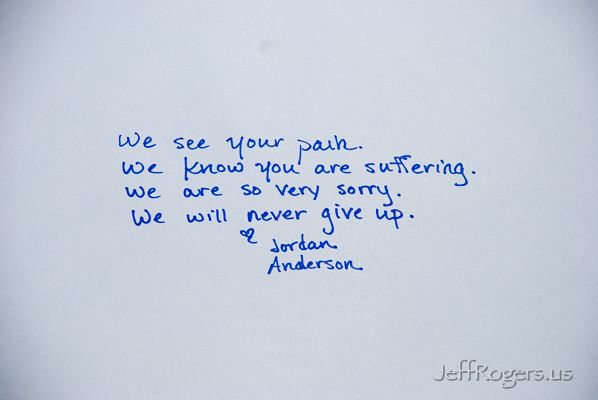 We see your pain.
We know you are suffering.
We are so very sorry.
We will never give up.
♡ Jordan
Anderson
JeffRogers.us